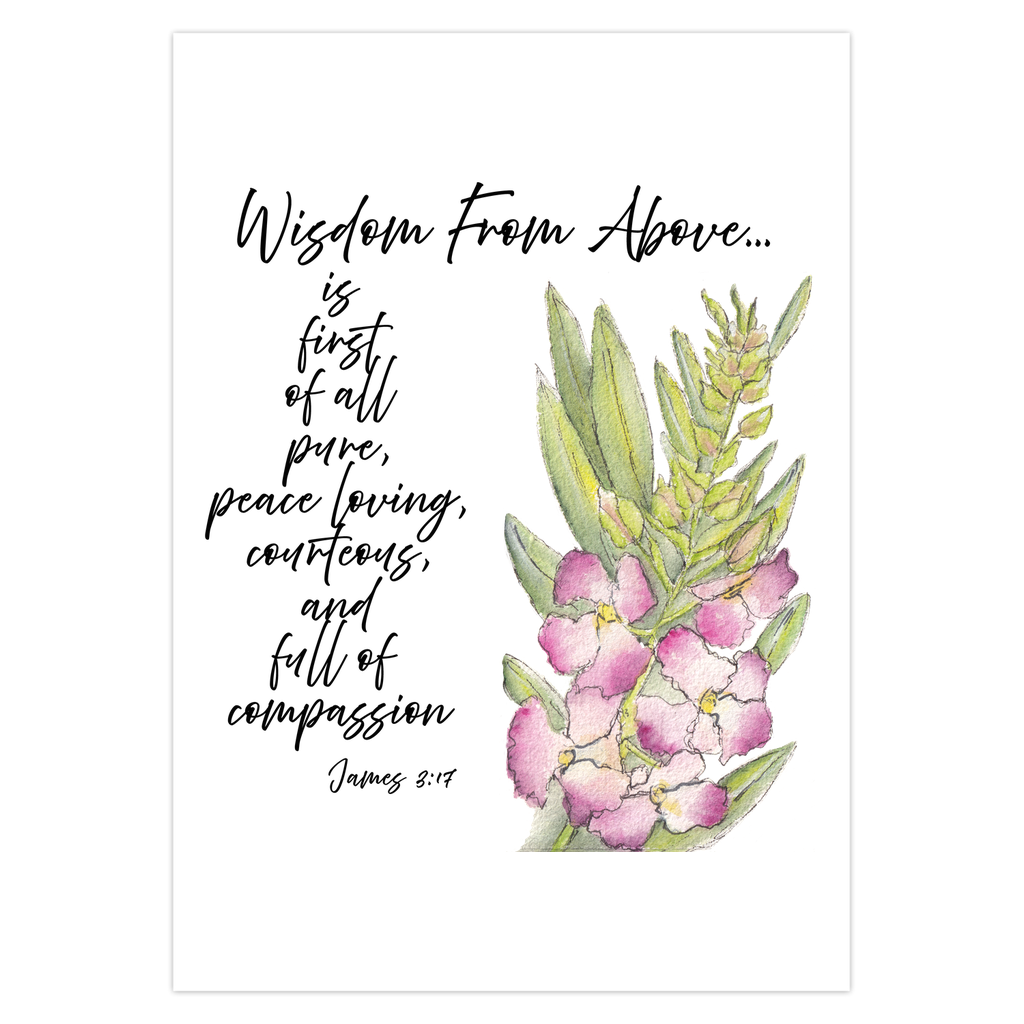 Wisdom From Above...
is
first
of all
pure,
peace loving,
courteous,
and
full of
compassion
James 3:17